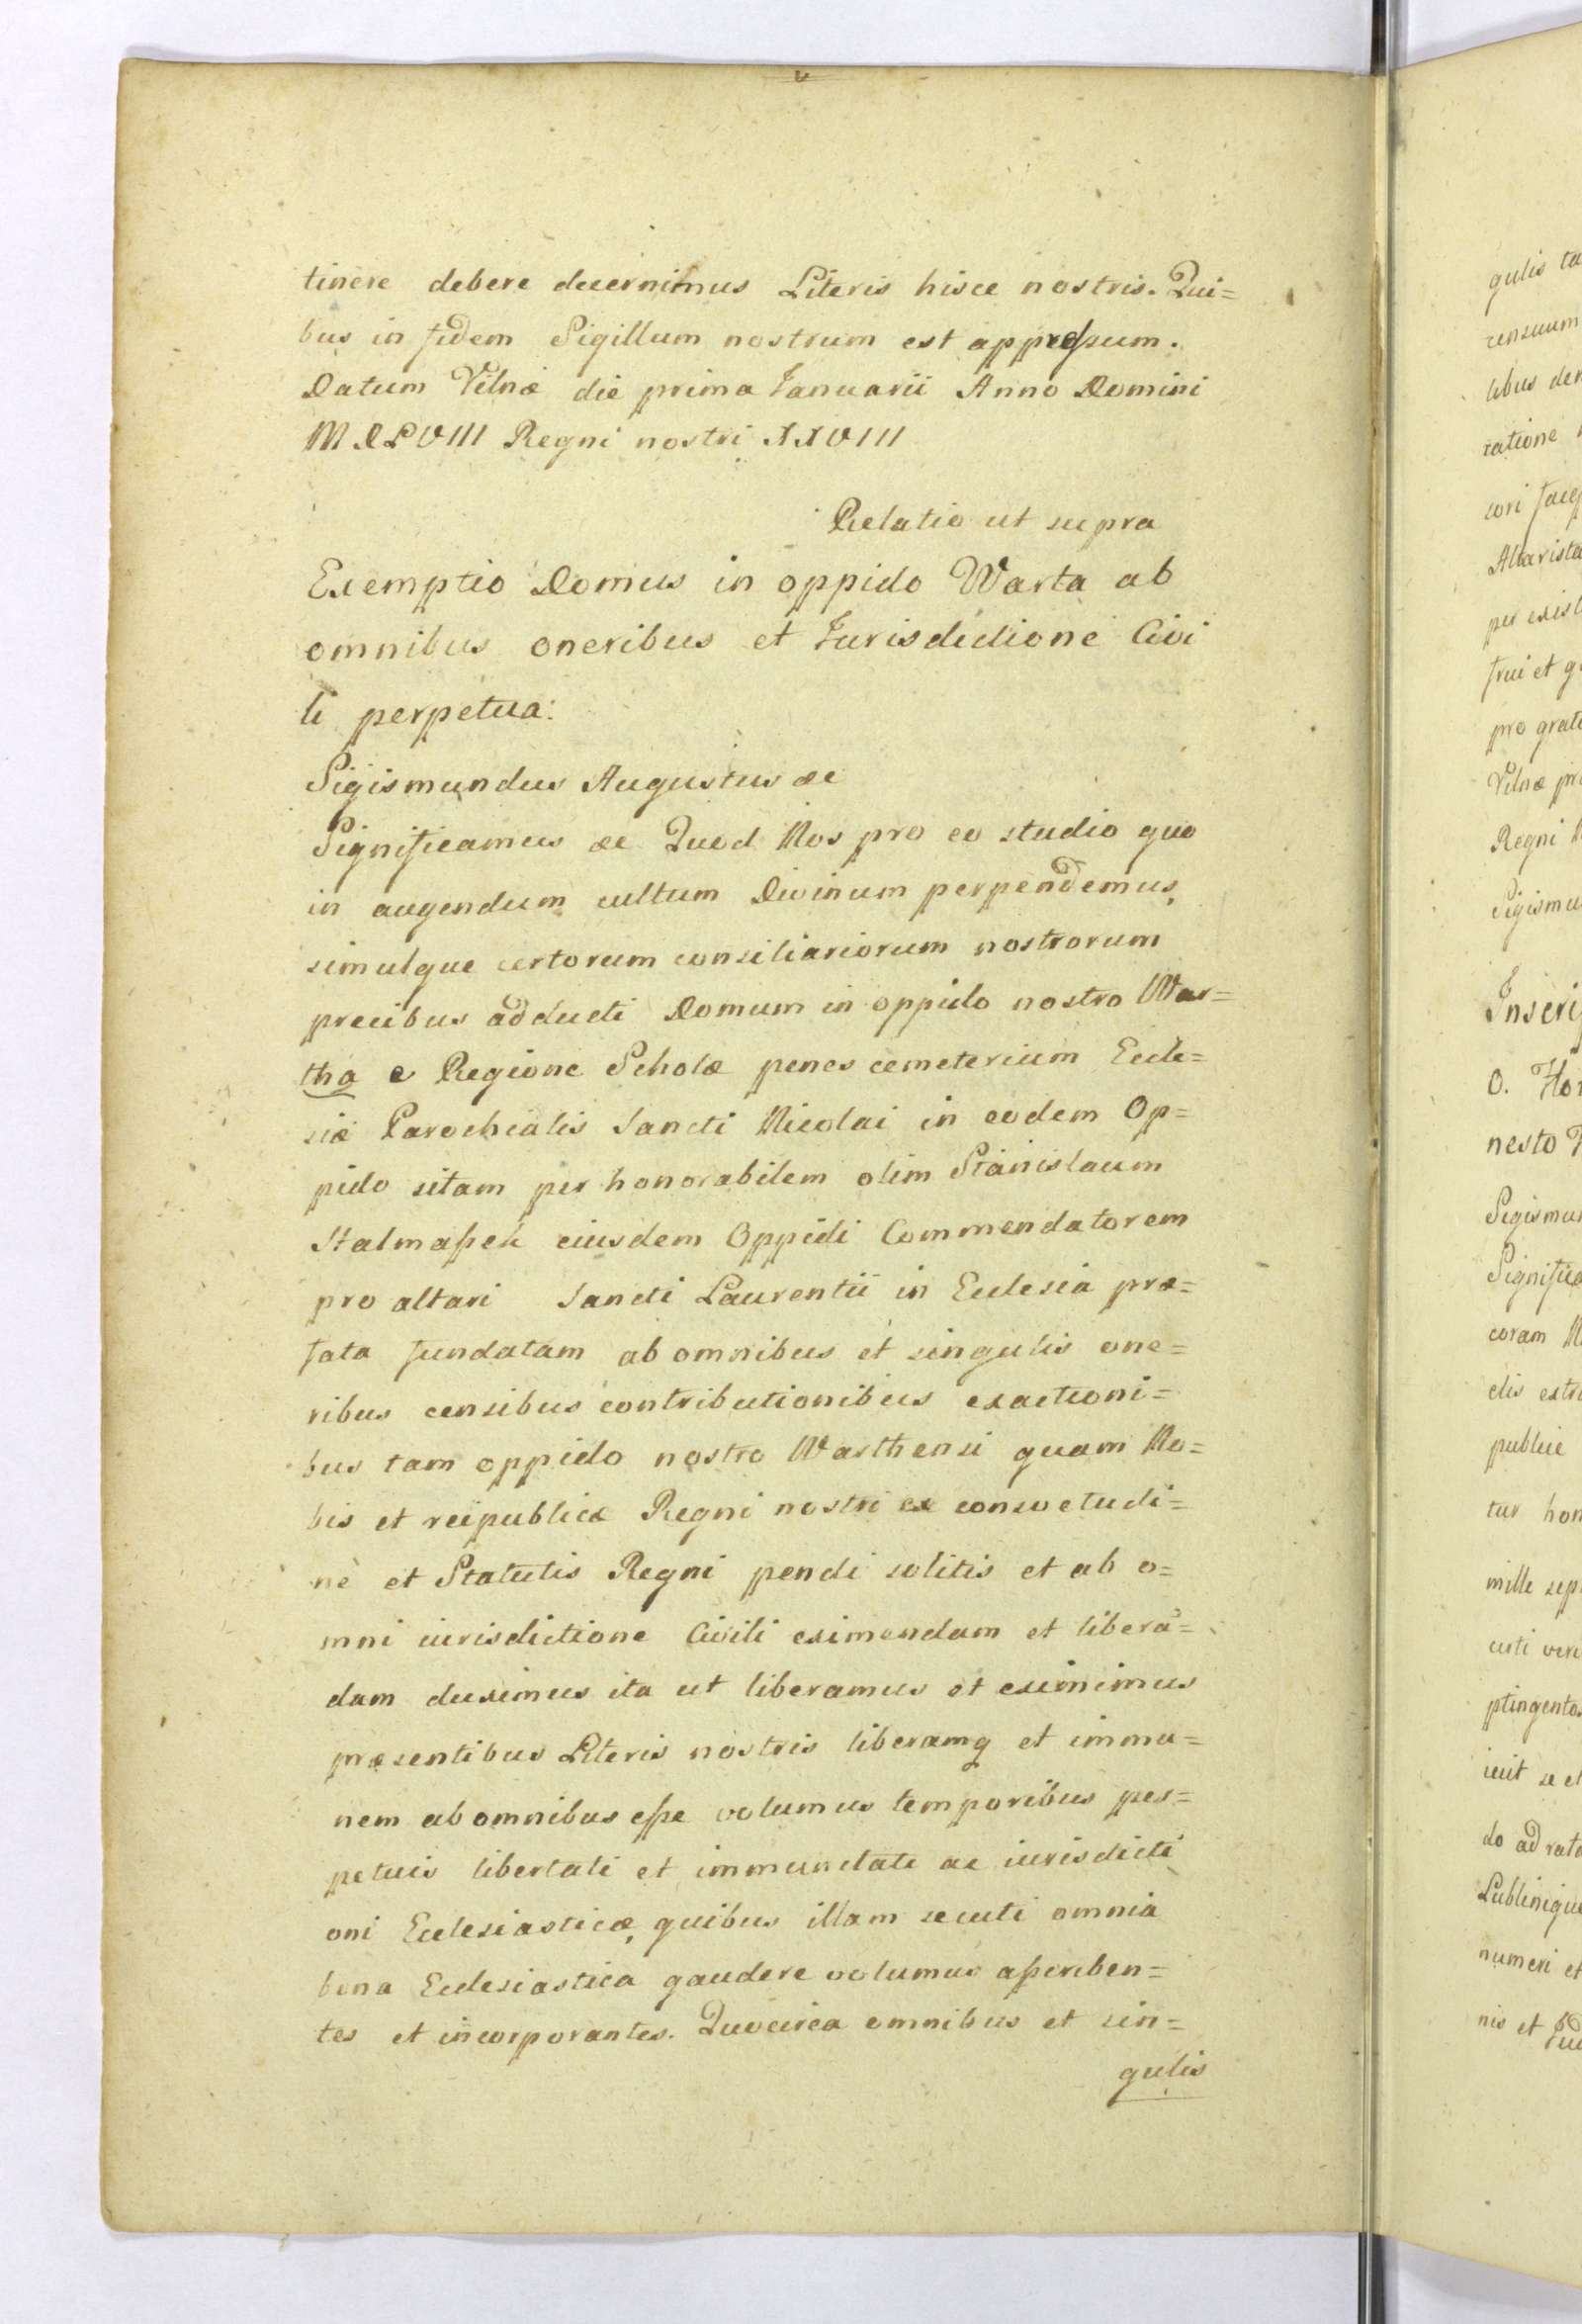 tinere debere decernimus Literis hisce nostris. Qui=
bus in fidem Sigillum nostrum est appressum.
Datum Vilnæ die prima Januarii Anno Domini
MDLVIII Regni nostri XXVIII
Relatio ut supra
Exemptio Domus in oppido Warta ab
omnibus oneribus et Jurisdictione Civi
li perpetua:
Sigismundus Augustus æc
Significamus æc Quod Nos pro eo studio quo
in augendum cultum Divinum perpendemus,
simulque certorum consiliariorum nostrorum
precibus adducti Domum in oppido nostro War=
tha e Regione Scholæ penes cemeterium Eccle=
siæ Parochialis Sancti Nicolai in eodem Op=
pido sitam per honorabilem olim Stanislaum
Stalmaßek eiusdem Oppidi Commendatorem
pro altari Sancti Laurentii in Ecclesia præ=
fata fundatam ab omnibus et singulis one=
ribus censibus contributionibus exactioni=
bus tam oppido nostro Warthensi quam No=
bis et reipublicæ Regni nostri ex consvetudi=
ne et Statutis Regni pendi solitis et ab o=
mni iurisdictione Civili eximendam et libera=
dam duximus ita ut liberamus et eximimus
præsentibus Literis nostris liberamq et immu=
nem ab omnibus eße volumus temporibus per=
petuis libertati et immunitati ac iurisdicti
oni Ecclesiasticæ, quibus illam secuti omnia
bona Ecclesiastica gaudere volumus aßcriben=
tes et incorporantes. Quocirca omnibus et sin=
gulis
gulis ta
censuum
libus der
ratione
cori
Altarista
per exist
frui et g
pro grat
Vilnæ pr
Regni N
Sigismu
Inscrip
O. Hor
nesto
Sigismun
Significa
coram N
clis extr
publice
tur hon
mille sep
certi ver
ptingento
icit se et
do ad rat
Lublinique
numeri et
nis et